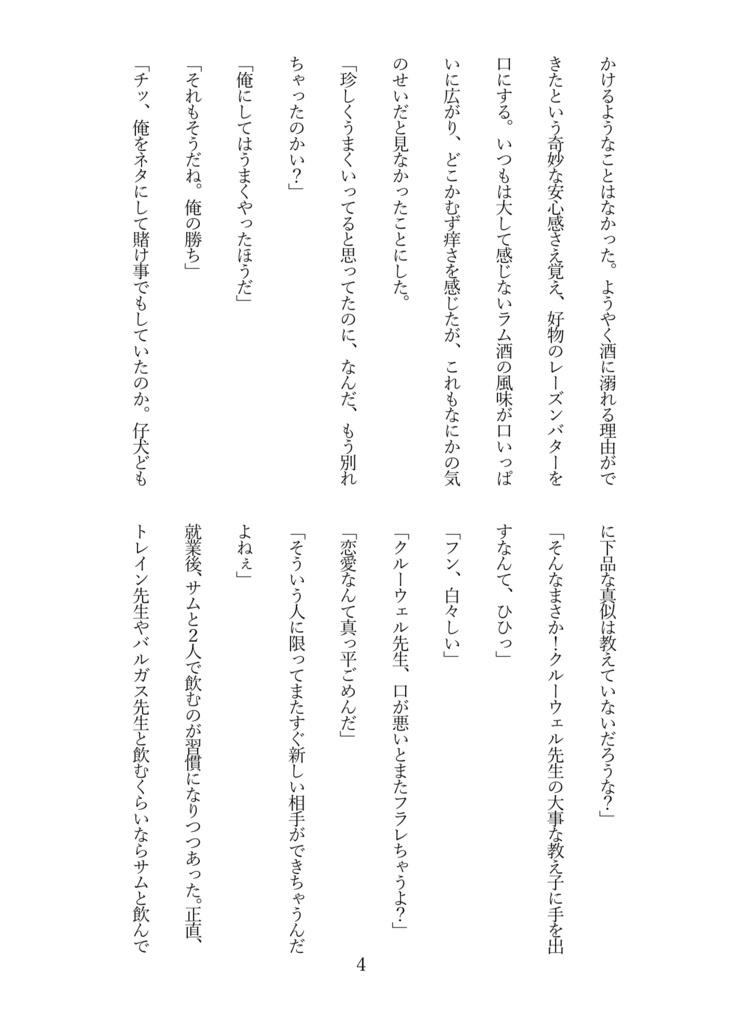 かけるようなことはなかった。ようやく酒に溺れる理由がで
きたという奇妙な安心感さえ覚え、好物のレーズンバターを
口にする。いつもは大して感じないラム酒の風味が口いっぱ
いに広がり、どこかむず痒さを感じたが、これもなにかの気
のせいだと見なかったことにした。
「珍しくうまくいってると思ってたのに、なんだ、もう別れ
ちゃったのかい？」
「俺にしてはうまくやったほうだ」
「それもそうだね。俺の勝ち」
「チッ、俺をネタにして賭け事でもしていたのか。仔犬ども
に下品な真似は教えていないだろうな？」
「そんなまさか！クルーウェル先生の大事な教え子に手を出
すなんて、ひひっ」
「フン、白々しい」
「クルーウェル先生、口が悪いとまたフラレちゃうよ？」
「恋愛なんて真っ平ごめんだ」
「そういう人に限ってまたすぐ新しい相手ができちゃうんだ
よねぇ」
就業後、サムと２人で飲むのが習慣になりつつあった。正直、
トレイン先生やバルガス先生と飲むくらいならサムと飲んで
4